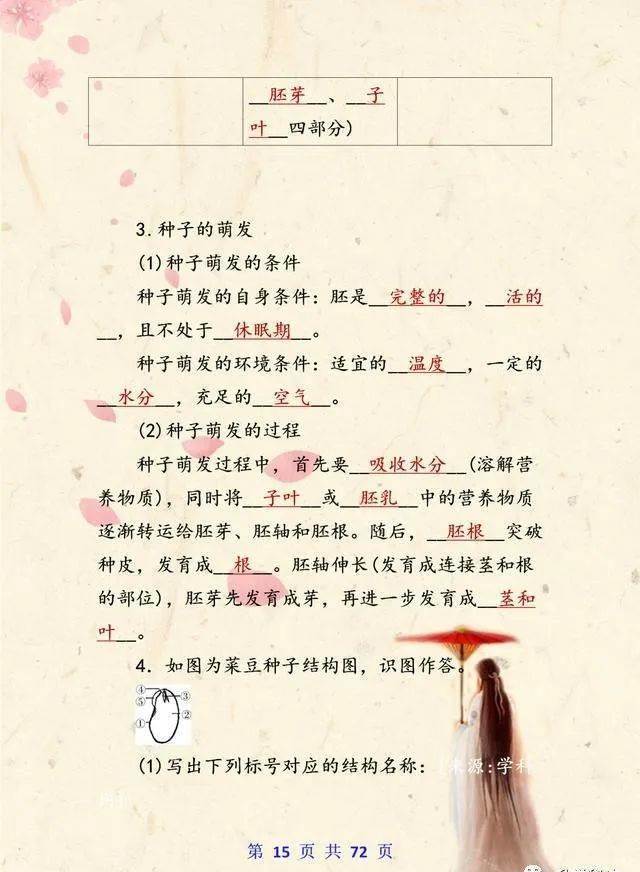 __胚芽__、__子
叶__四部分)
3.种子的萌发
(1)种子萌发的条件
种子萌发的自身条件:胚是__完整的__,__活的
__,且不处于__休眠期__。
种子萌发的环境条件:适宜的__温度__,一定的
__水分__,充足的__空气__。
(2)种子萌发的过程
种子萌发过程中,首先要__吸收水分__(溶解营
养物质),同时将__子叶__或__胚乳__中的营养物质
逐渐转运给胚芽、胚轴和胚根。随后,__胚根__突破
种皮,发育成__根__。胚轴伸长(发育成连接茎和根
的部位),胚芽先发育成芽,再进一步发育成__茎和
叶__。
4. 如图为菜豆种子结构图,识图作答。
④
⑤
③
①
②
(1)写出下列标号对应的结构名称:[来源:学科
第 15 页 共 72 页